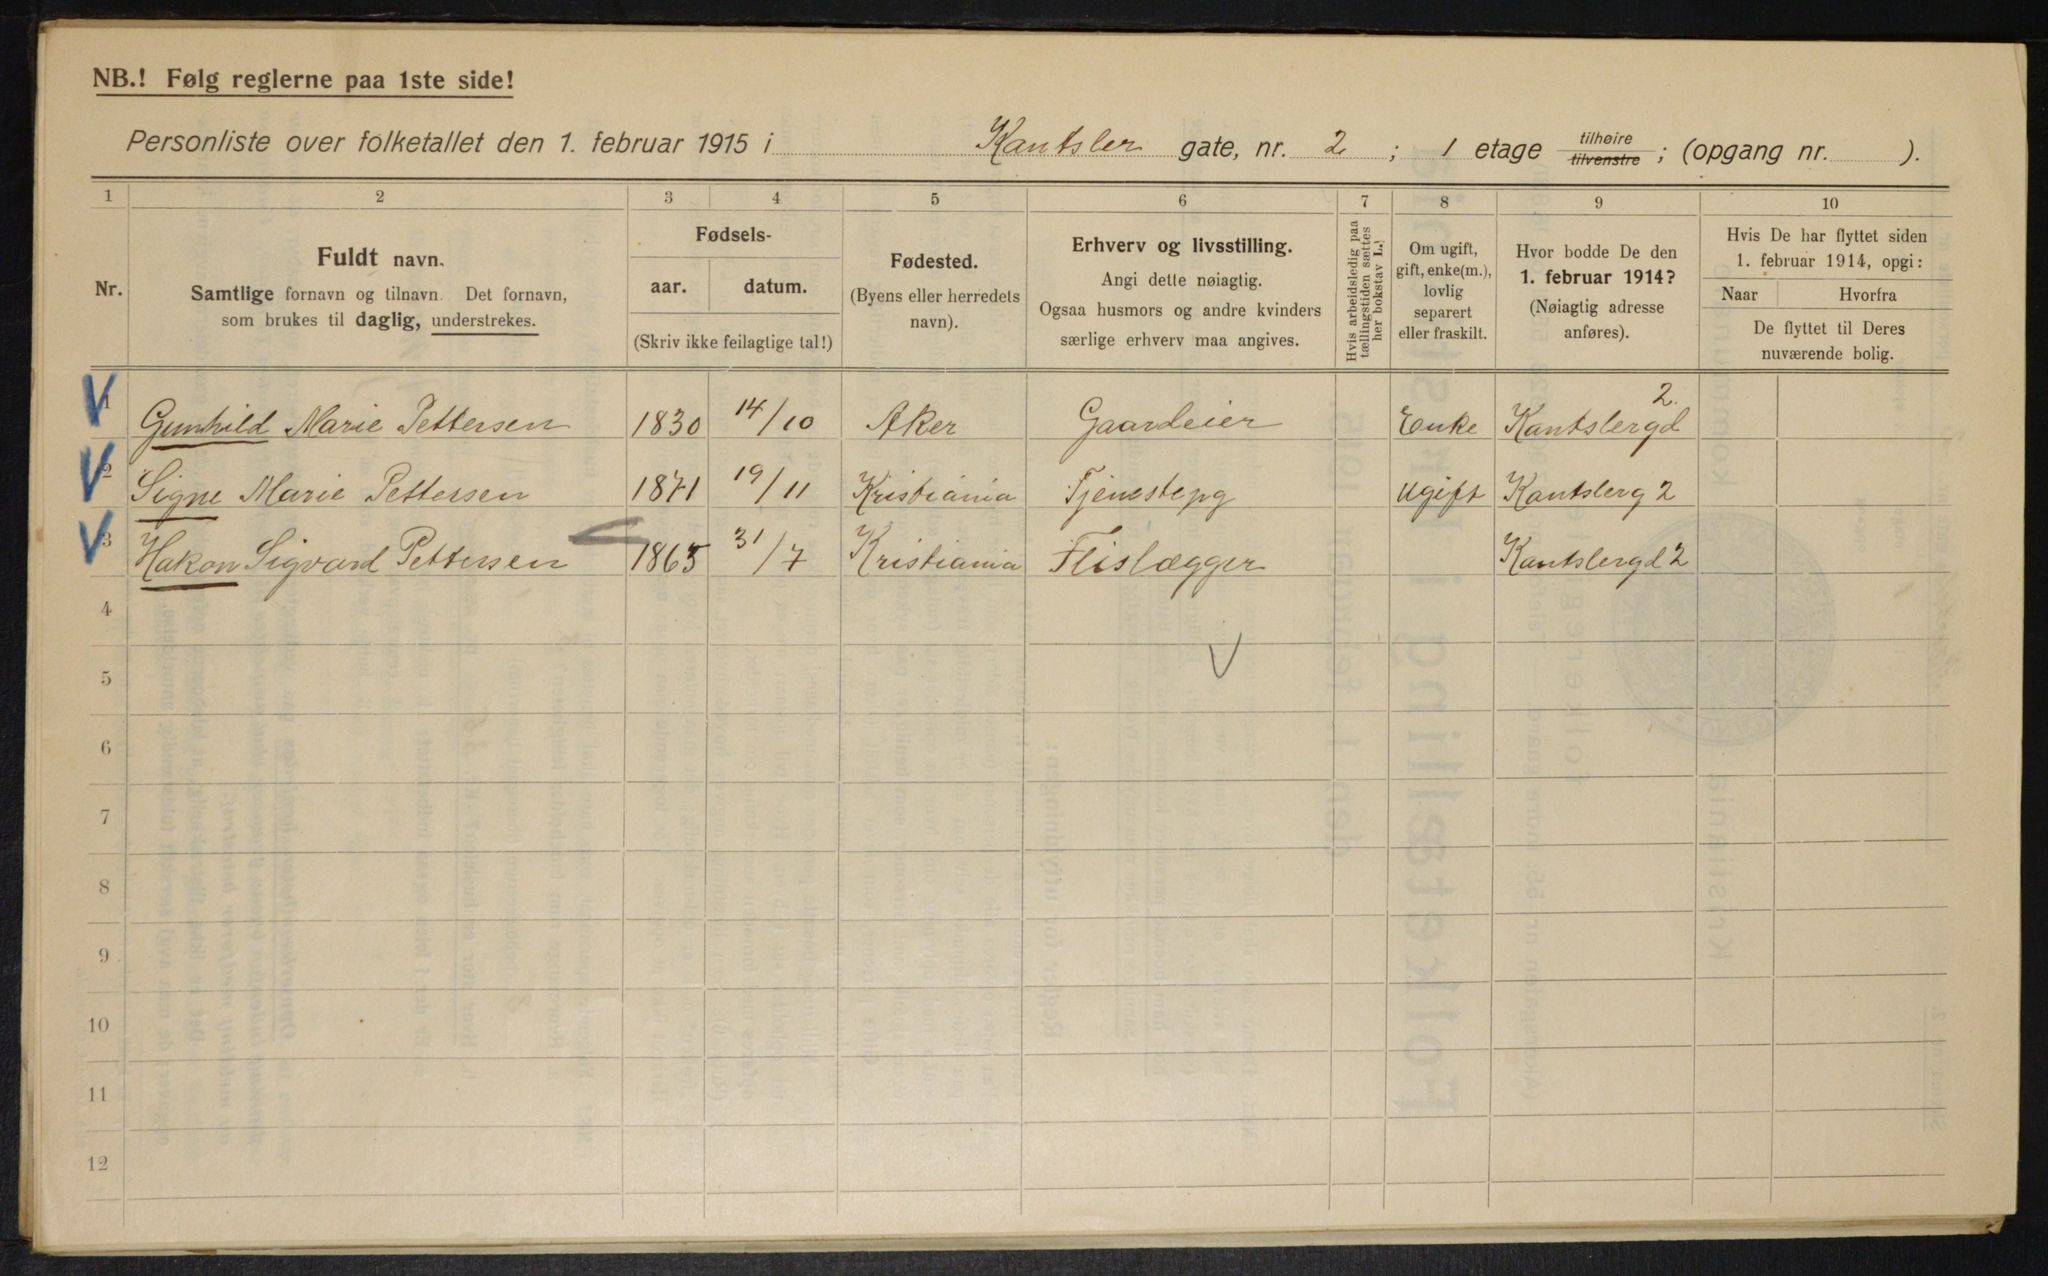 NB.! Følg reglerne paa 1ste side!
Personliste over folketallet den 1. februar 1915 i Kantsler gate, nr. 2 ; 1 etage tilhøire tilvenstre ; (opgang nr. ).
1 2 3 4 5 6 7 8 9 10
Nr.
Fuldt navn.
Samtlige fornavn og tilnavn. Det fornavn,
som brukes til daglig, understrekes.
Fødsels-
aar. datum.
(Skriv ikke feilagtige tal!)
Fødested.
(Byens eller herredets
navn).
Erhverv og livsstilling.
Angi dette nøiagtig.
Ogsaa husmors og andre kvinders
særlige erhverv maa angives.
Hvis arbeidsledig paa
tællingstiden sættes
her bokstav L.)
Om ugift,
gift, enke(m.),
lovlig
separert
eller fraskilt.
Hvor bodde De den
1. februar 1914?
(Nøiagtig adresse
anføres).
Hvis De har flyttet siden
1. februar 1914, opgi:
Naar Hvorfra
De flyttet til Deres
nuværende bolig.
1 Gunhild Marie Pettersen 1830 14/10 Aker Gaardeier Enke Kantslergd 2.
2 Signe Marie Pettersen 1871 19/11 Kristiania Tjenestepg ugift Kantslerg 2
3 Hakon Sigvard Pettersen 1865 31/7 Kristiania Flislægger Kantslergd 2
4
5
6
7
8
9
10
11
12